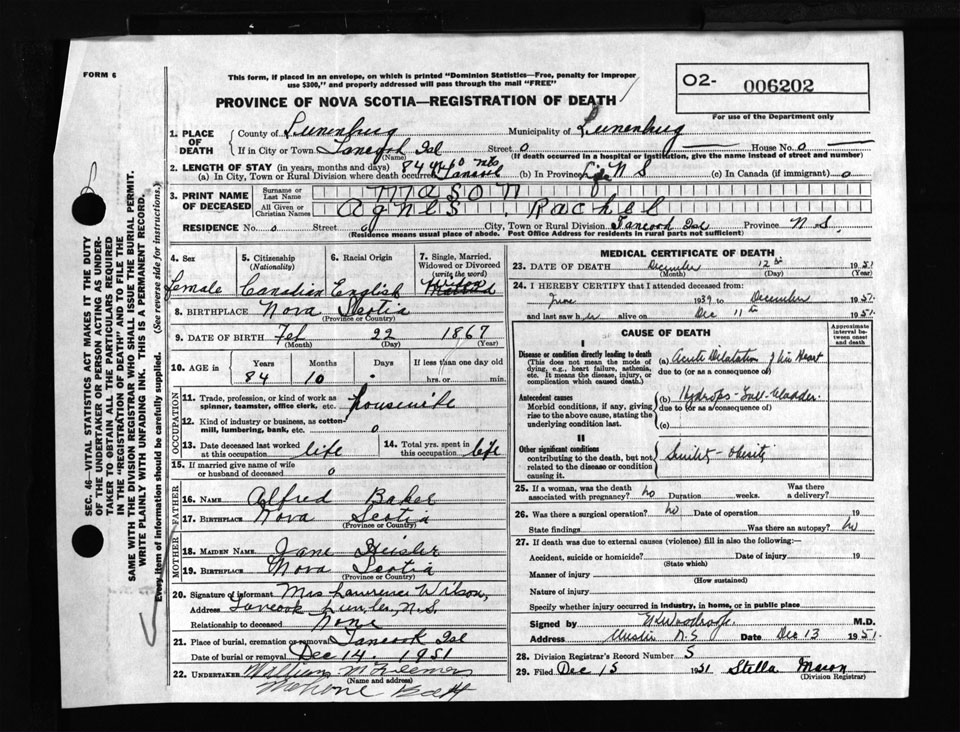 FORM 6
This form, if placed in an envelope, on which is printed "Dominion Statistics—Free, penalty for improper
use $300," and properly addressed will pass through the mail "FREE"
O2- 006202
For use of the Department only
PROVINCE OF NOVA SCOTIA—REGISTRATION OF DEATH
1. PLACE OF DEATH
County of Lunenburg Municipality of Lunenburg
If in City or Town Tancook Isl (Name) Street 0 House No. 0
(If death occurred in a hospital or institution, give the name instead of street and number)
2. LENGTH OF STAY (in years, months and days) 84 yrs 10 mts
(a) In City, Town or Rural Division where death occurred Tancook (b) In Province Life N S (c) In Canada (if immigrant) 0
3. PRINT NAME OF DECEASED
Surname or Last Name MASON
All Given or Christian Names Agnes Rachel
RESIDENCE No. 0 Street 0 City, Town or Rural Division Tancook Isl Province N.S.
(Residence means usual place of abode. Post Office Address for residents in rural parts not sufficient)
4. Sex female
5. Citizenship (Nationality) Canadian
6. Racial Origin English
7. Single, Married, Widowed or Divorced (write the word)
8. BIRTHPLACE Nova Scotia
(Province or Country)
9. DATE OF BIRTH Feb (Month) 22 (Day) 1867 (Year)
10. AGE in Years 84 Months 10 Days If less than one day old hrs. or min.
OCCUPATION
11. Trade, profession, or kind of work as spinner, teamster, office clerk, etc. housewife
12. Kind of industry or business, as cotton-mill, lumbering, bank, etc. 0
13. Date deceased last worked at this occupation life
14. Total yrs. spent in this occupation life
15. If married give name of wife or husband of deceased 0
FATHER
16. NAME Alfred Baker
17. BIRTHPLACE Nova Scotia
(Province or Country)
MOTHER
18. MAIDEN NAME Jane Heisler
19. BIRTHPLACE Nova Scotia
(Province or Country)
20. Signature of informant Mrs Lawrence Wilson,
Address Tancook Lunenb, N.S.
Relationship to deceased None
21. Place of burial, cremation or removal Tancook Isl
Date of burial or removal Dec 14. 1951
22. UNDERTAKER William
(NAME AND ADDRESS)
Mahone Bay
MEDICAL CERTIFICATE OF DEATH
23. DATE OF DEATH December (Month) 12th (Day) 1951 (Year)
24. I HEREBY CERTIFY that I attended deceased from:
June 1939 to December 1951
and last saw her alive on Dec 11th 1951
CAUSE OF DEATH
Approximate interval between onset and death
I
Disease or condition directly leading to death
(This does not mean the mode of dying, e.g., heart failure, asthenia, etc. It means the disease, injury, or complication which caused death.)
(a) Acute Dilatation of his Heart
due to (or as a consequence of)
Antecedent causes
Morbid conditions, if any, giving rise to the above cause, stating the underlying condition last.
(b) Hydrops - Gall-bladder
due to (or as a consequence of)
(c)
II
Other significant conditions contributing to the death, but not related to the disease or condition causing it.
Senility - Obesity
25. If a woman, was the death associated with pregnancy? no Duration weeks. Was there a delivery?
26. Was there a surgical operation? no Date of operation 19
State findings Was there an autopsy? no
27. If death was due to external causes (violence) fill in also the following:—
Accident, suicide or homicide? (State which) Date of injury 19
Manner of injury (How sustained)
Nature of injury
Specify whether injury occurred in industry, in home, or in public place
Signed by M.D.
Address N.S Date Dec 13 1951.
28. Division Registrar's Record Number 5
29. Filed Dec 15 1951 Stella Mason
(Division Registrar)
SEC. 46—VITAL STATISTICS ACT MAKES IT THE DUTY
OF THE UNDERTAKER OR PERSON ACTING AS UNDER-
TAKER TO OBTAIN ALL THE PARTICULARS REQUIRED
IN THE "REGISTRATION OF DEATH" AND TO FILE THE
SAME WITH THE DIVISION REGISTRAR WHO SHALL ISSUE THE BURIAL PERMIT.
WRITE PLAINLY WITH UNFADING INK. THIS IS A PERMANENT RECORD.
Every item of information should be carefully supplied. (See reverse side for instructions.)